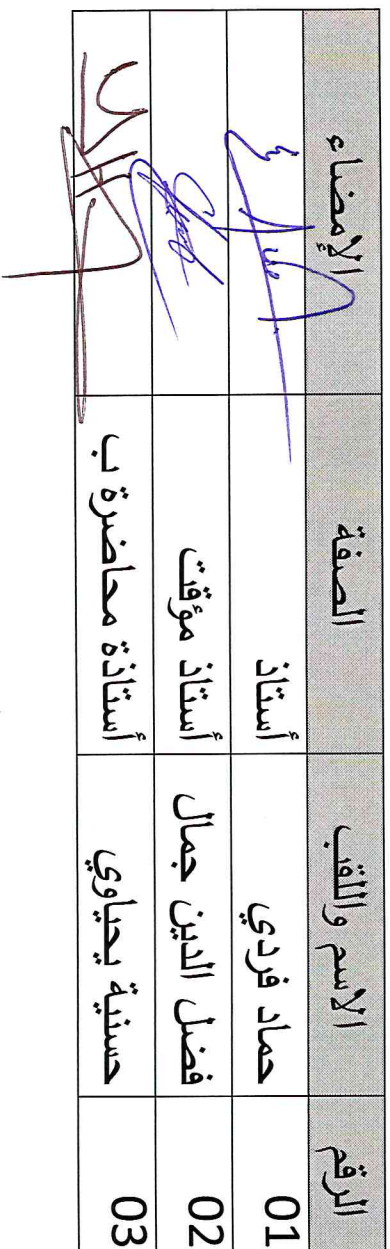 الرقم الاسم واللقب الصفة الإمضاء
01 حماد فردي أستاذ
02 فضل الدين جمال أستاذ مؤقت
03 حسنية يحياوي أستاذة محاضرة ب